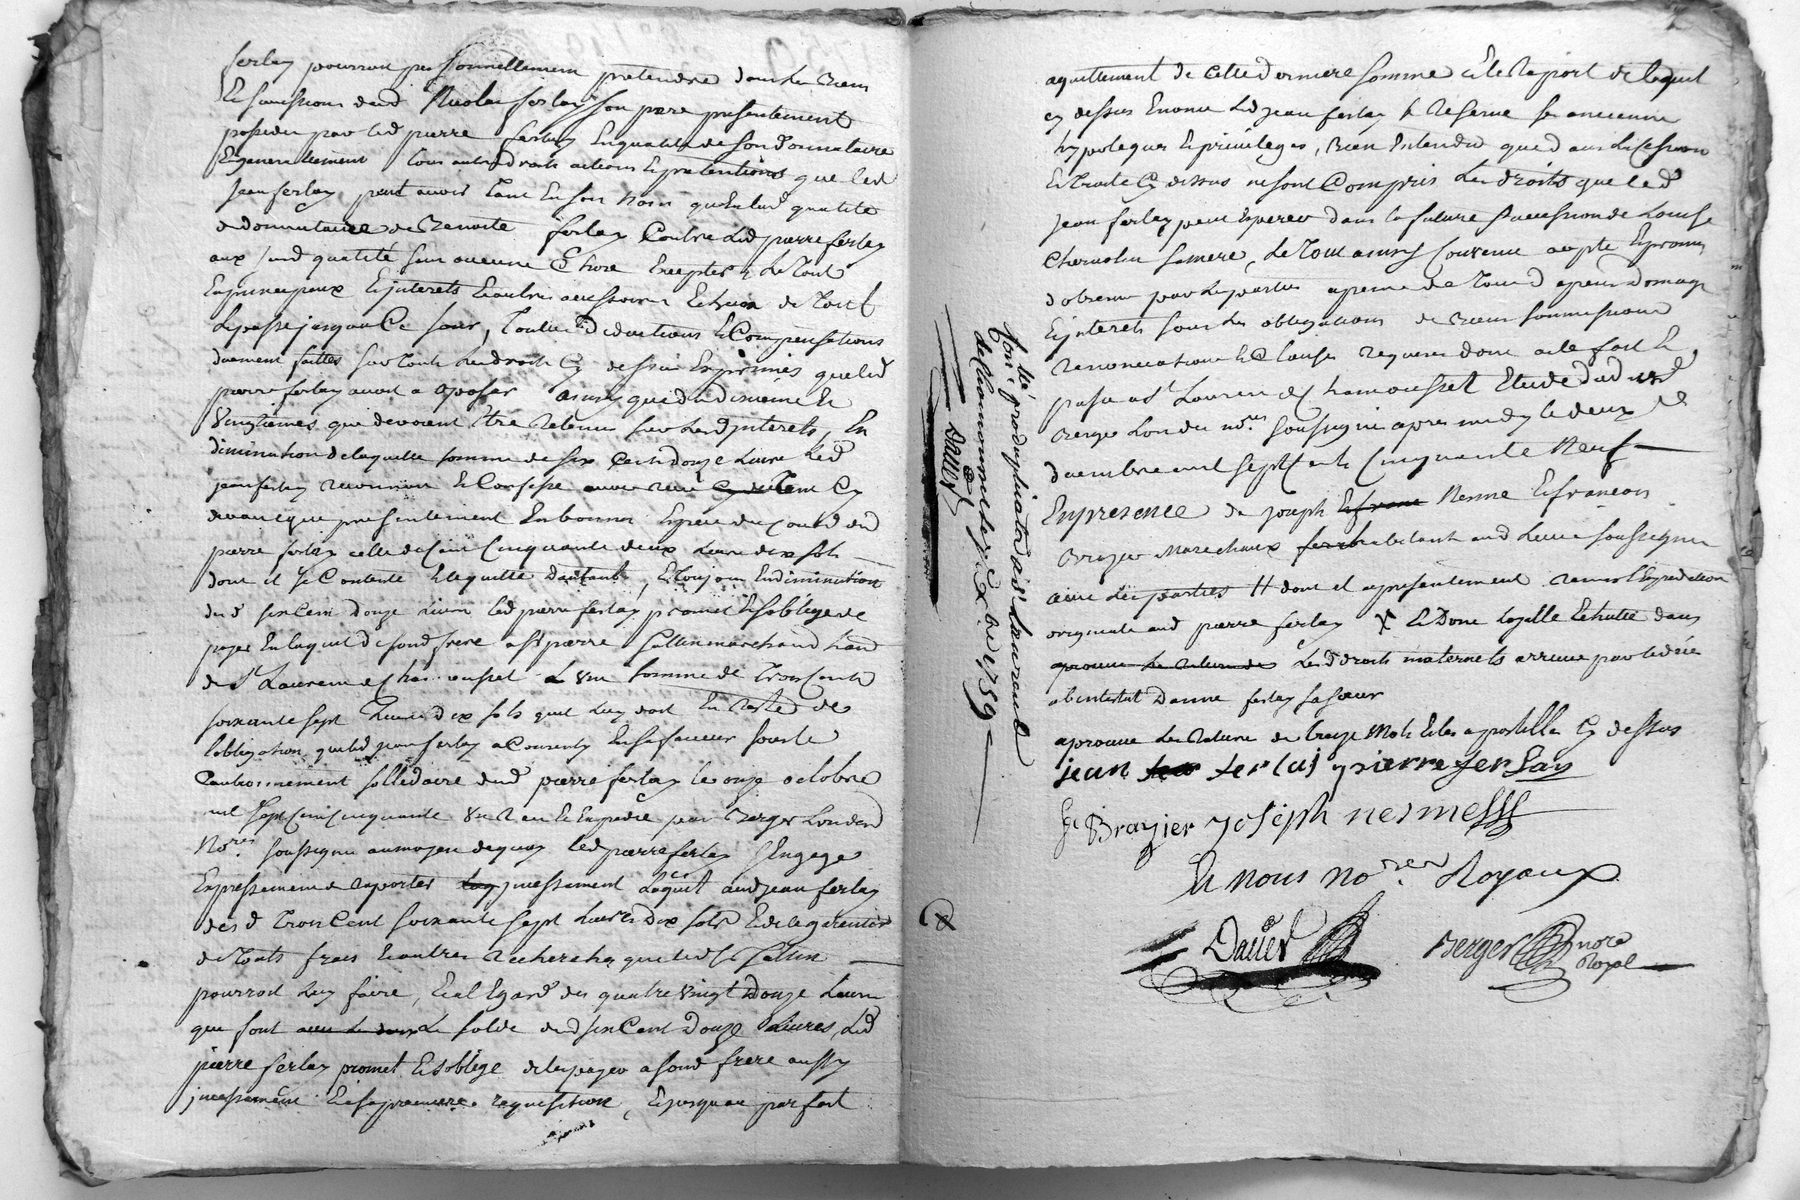 ferlay pourroit personnellement pretendre dans les biens
Et successions dud Nicolas ferlay son pere presentement
possedés par led pierre ferlay En qualité de son donnataire
Et generallement tous autres droits actions Et pretentions que led
Jean ferlay peut avoir tant En son nom qu'En lad qualité
de donnataire de Benoite ferlay Contre led pierre ferlay
aux susd qualité sans aucune Chose Excepter Le tout
En principaux Et jnterets Et autres accessoires Et de tout
Le passé jusqua Ce jour, Toutes Deductions Et Compensations
duement faittes sur Touts Lesd droits Cy dessus Exprimés que led
pierre ferlay avoit a oposer ainsy que du dixieme Et
Vingtiemes que devoient être Retenus sur Lesd jnterets, En
diminution de laquelle somme de six Cent douze Livres Led
jean ferlay reconnoit Et Confesse avoir Reçu Cy
devant que presentement En bonnes Especes du Cours dud
pierre ferlay celle de Cent Cinquante deux Livres dix sols
dont il se Contente Et le quitte d'autant, Et toujours En diminution
desd six Cent douze Livres led pierre ferlay promet Et s'oblige de
payer En l'aquit de sond frere a Sr pierre marchand
de St Laurent de Chamousset La somme de Trois Cents
soixante sept Livres dix sols quil luy doit En Reste de
l'obligation que led jean ferlay a Consenty En sa faveur sous le
Cautionnement sollidaire dud pierre ferlay le onze octobre
mil sept Cent Cinquante Un Reçu Et Expedié par Berger L'un des
Nores soussigné au moyen de quoy led pierre ferlay s'Engage
Expressement de raporter jncessament L'aquit aud jean ferlay
desd Trois Cent soixante sept Livres Dix sols Et de le garentir
de Touts frais Et autres Recherches que led Sr
pourroit luy faire, Et a l'Egard des quatre vingt Douze Livres
que font Le solde desd six Cent Douze Livres, Led
pierre ferlay promet Et s'oblige de les payer a sond frere aussy
jncessament Et a sa premiere requisition, Et jusquau parfait
aquittement de cette derniere somme Et le Raport de l'aquit
cy dessus Enoncé Led jean ferlay se Reserve ses anciennes
hypoteques Et privileges, Bien Entendu que dans la Cession
Et Traité Cy dessus ne sont Compris Les droits que led
Jean ferlay peut Esperer dans la future succession de Louise
sa mere, Le Tout ainsy Convenu accepté Et promis
d'observer par les parties a peine de Tous depens Domages
Et jnterets sous les obligations de Biens soumissions
Renonciations Et Clauses requises dont acte fait Et
passé a St Laurent de Chamousset Etude dud
Berger L'un des nores soussigné apres midy le deux de
decembre mil sept Cents Cinquante Neuf
En presence de joseph Nesme Et francois
Brazier Marechaux habitants aud Lieu soussignés
avec Les parties H dont il a presentement remis l'Expedition
originale aud pierre ferlay X Et Dont laquelle Echutte dans
Lesd droits maternels arrivée par le decés
abintestat Danne ferlay sa soeur
aprouvé La Rature de treize Mots Et les apostilles Cy dessus
jean ferlay pierre ferlay
f Brazier joseph nesme
Et nous Nores Royaux
Daüet Berger nore
Royal
Conté productata a St Laurent
de Chamousset le Xbre 1759
Daüet